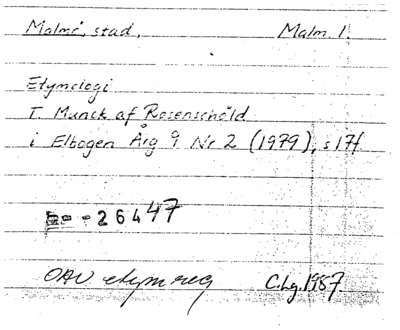 Malmö, stad, Malm. l.
Etymologi
T. Munck af Rosenschöld
i Elbogen Årg 9 Nr 2 (1979), s 17f
26447
OAU etym reg C.Lg. 1987